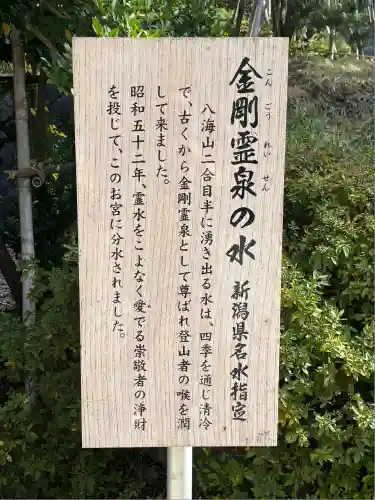 金剛霊泉の水
こんごうれいせん
新潟県名水指定
八海山二合目半に湧き出る水は、四季を通じ清冷
で、古くから金剛霊泉として尊ばれ登山者の喉を潤
して来ました。
昭和五十二年、霊水をこよなく愛でる崇敬者の浄財
め
を投じて、このお宮に分水されました。